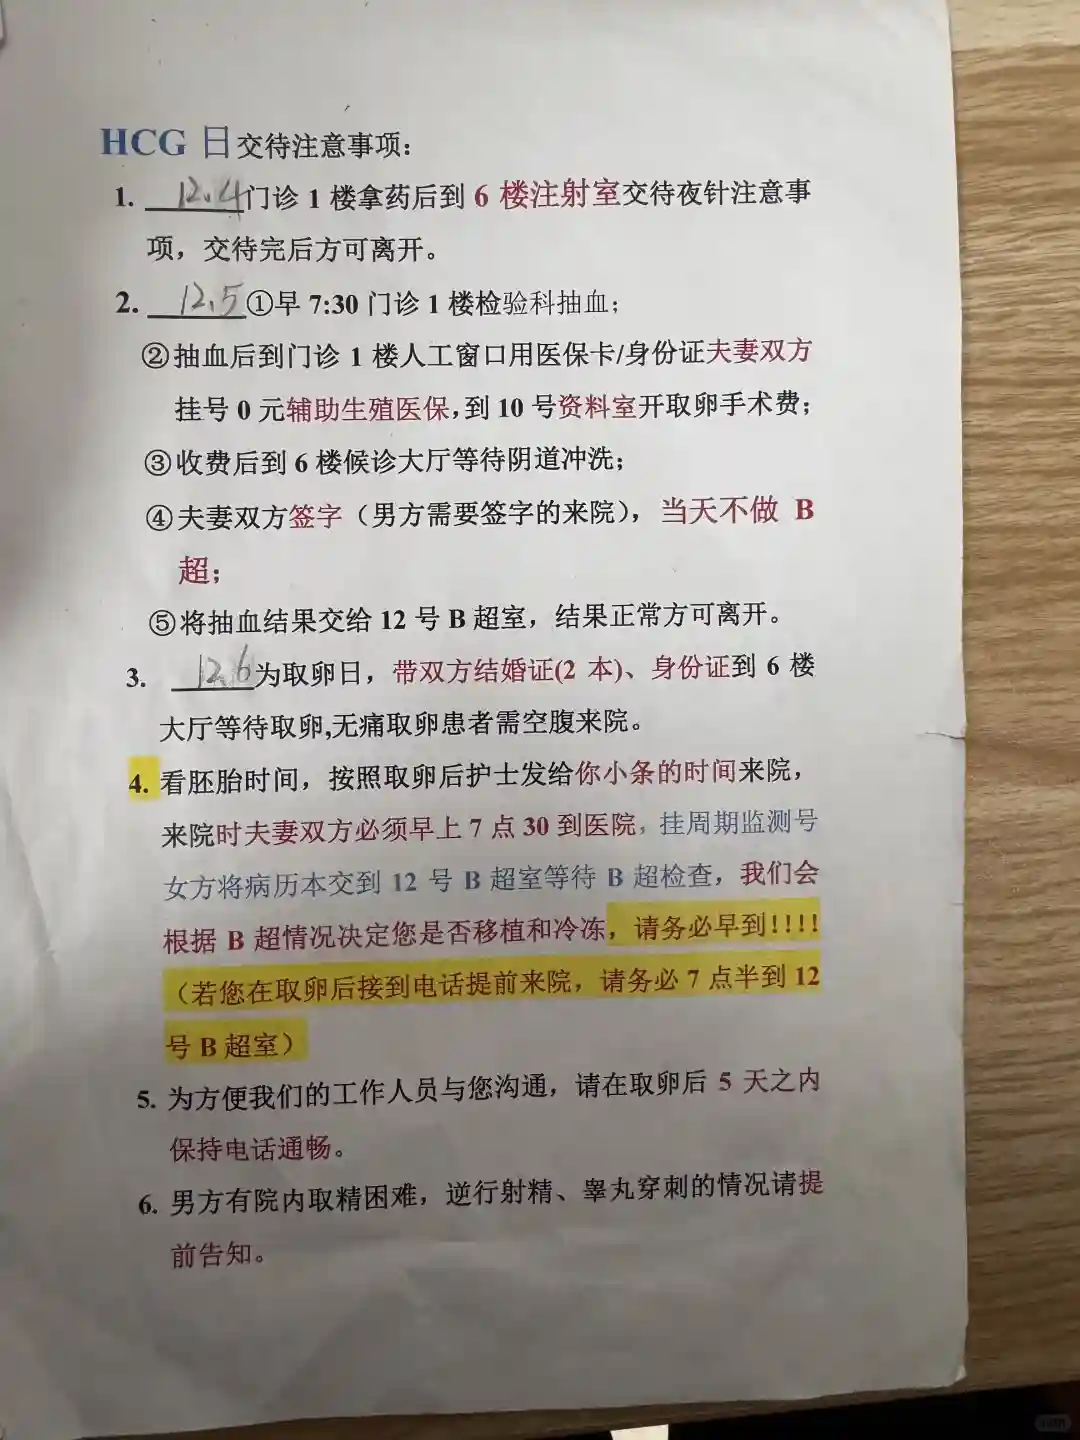 HCG 日交待注意事项：
1. 12.4门诊 1 楼拿药后到 6 楼注射室交待夜针注意事
项，交待完后方可离开。
2. 12.5①早 7:30 门诊 1 楼检验科抽血；
②抽血后到门诊 1 楼人工窗口用医保卡/身份证夫妻双方
挂号 0 元辅助生殖医保，到 10 号资料室开取卵手术费；
③收费后到 6 楼候诊大厅等待阴道冲洗；
④夫妻双方签字（男方需要签字的来院），当天不做 B
超；
⑤将抽血结果交给 12 号 B 超室，结果正常方可离开。
3. 12.6为取卵日，带双方结婚证(2 本)、身份证到 6 楼
大厅等待取卵,无痛取卵患者需空腹来院。
4. 看胚胎时间，按照取卵后护士发给你小条的时间来院，
来院时夫妻双方必须早上 7 点 30 到医院，挂周期监测号
女方将病历本交到 12 号 B 超室等待 B 超检查，我们会
根据 B 超情况决定您是否移植和冷冻，请务必早到!!!!
（若您在取卵后接到电话提前来院，请务必 7 点半到 12
号 B 超室）
5. 为方便我们的工作人员与您沟通，请在取卵后 5 天之内
保持电话通畅。
6. 男方有院内取精困难，逆行射精、睾丸穿刺的情况请提
前告知。